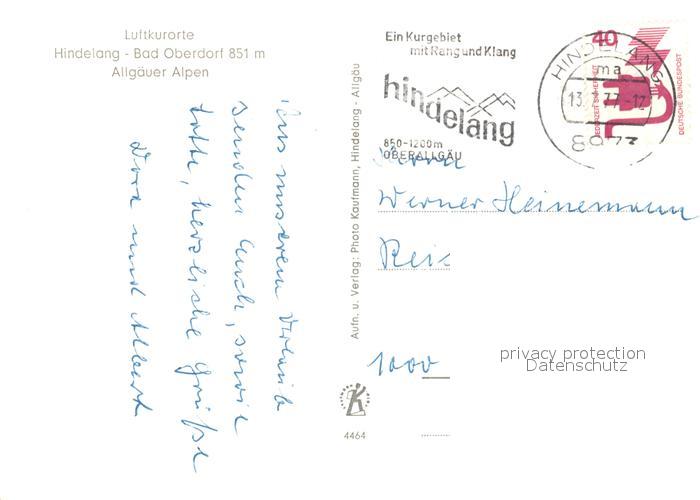 Luftkurorte
Hindelang - Bad Oberdorf 851 m
Allgäuer Alpen
Aus unserem Urlaub
senden Euch, sowie
Lotte, herzliche Grüße
Dora und Albert
Aufn. u. Verlag: Photo Kaufmann, Hindelang - Allgäu
4464
Ein Kurgebiet
mit Rang und Klang
hindelang
850-1200m
OBERALLGÄU
HINDELANG
ma
77-12
8973
40
JEDERZEIT SICHERHEIT
DEUTSCHE BUNDESPOST
Herrn
Werner Heinemann
1000
privacy protection
Datenschutz